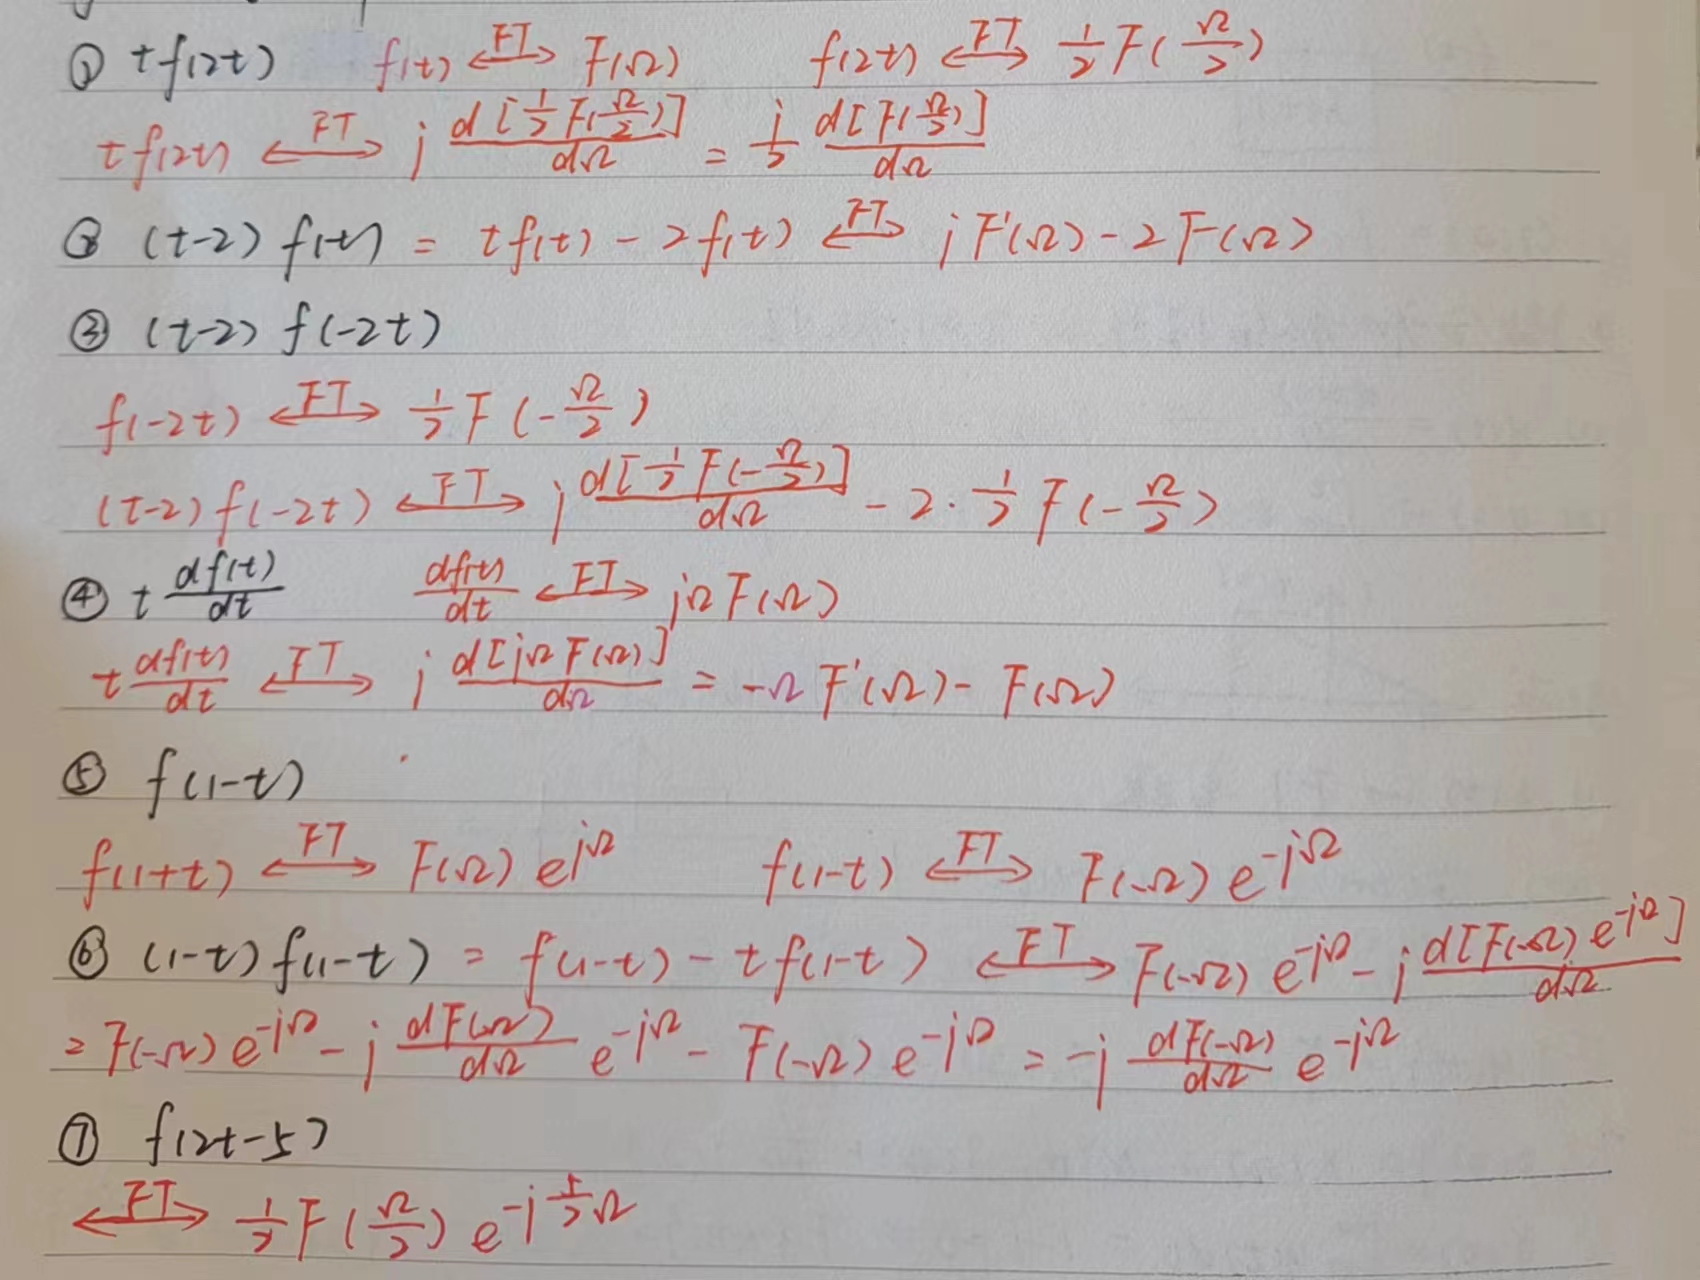 ① tf(2t) f(t) ⟷FT F(Ω) f(2t) ⟷FT 1/2 F(Ω/2)
tf(2t) ⟷FT j d[1/2 F(Ω/2)]/dΩ = j/2 d[F(Ω/2)]/dΩ
② (t-2) f(t) = tf(t) - 2f(t) ⟷FT jF'(Ω) - 2F(Ω)
③ (t-2) f(-2t)
f(-2t) ⟷FT 1/2 F(-Ω/2)
(t-2) f(-2t) ⟷FT j d[1/2 F(-Ω/2)]/dΩ - 2·1/2 F(-Ω/2)
④ t df(t)/dt df(t)/dt ⟷FT jΩF(Ω)
t df(t)/dt ⟷FT j d[jΩF(Ω)]/dΩ = -ΩF'(Ω) - F(Ω)
⑤ f(1-t)
f(1+t) ⟷FT F(Ω) e^jΩ f(1-t) ⟷FT F(-Ω) e^-jΩ
⑥ (1-t) f(1-t) = f(1-t) - tf(1-t) ⟷FT F(-Ω) e^-jΩ - j d[F(-Ω) e^-jΩ]/dΩ
= F(-Ω) e^-jΩ - j dF(-Ω)/dΩ e^-jΩ - F(-Ω) e^-jΩ = -j dF(-Ω)/dΩ e^-jΩ
⑦ f(2t-5)
⟷FT 1/2 F(Ω/2) e^-j5/2Ω